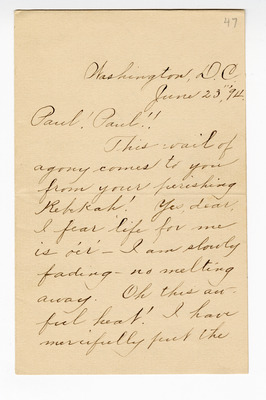 47
Washington, D.C.
June 23", 94.
Paul! Paul!!
This wail of
agony comes to you
from your perishing
Rebekah! Ye, dear,
I fear life for me
is o'er - I am slowly
fading - no melting
away. Oh this aw-
ful heat! I have
mercifully put the